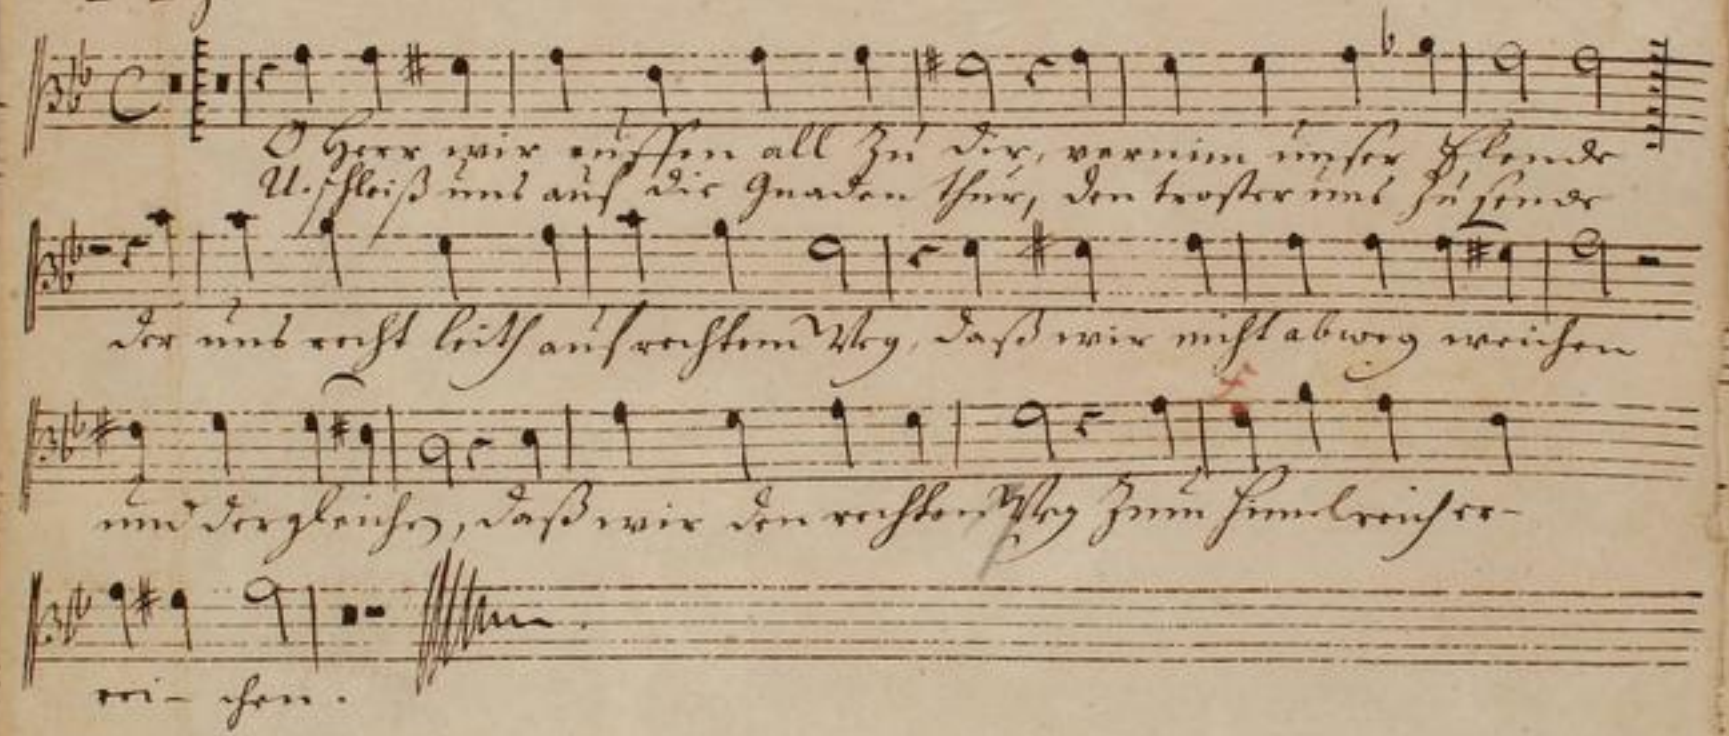 O Herr wir ruffen all zu dir, vernim unser Elende
U. schleiß uns auf die Gnaden thür, den troster uns zu sende
der uns recht leith auf rechtem Weg, daß wir nicht abweg weichen
und dergleichen, daß wir den rechten Weg zum himelreich er-
rei- chen.